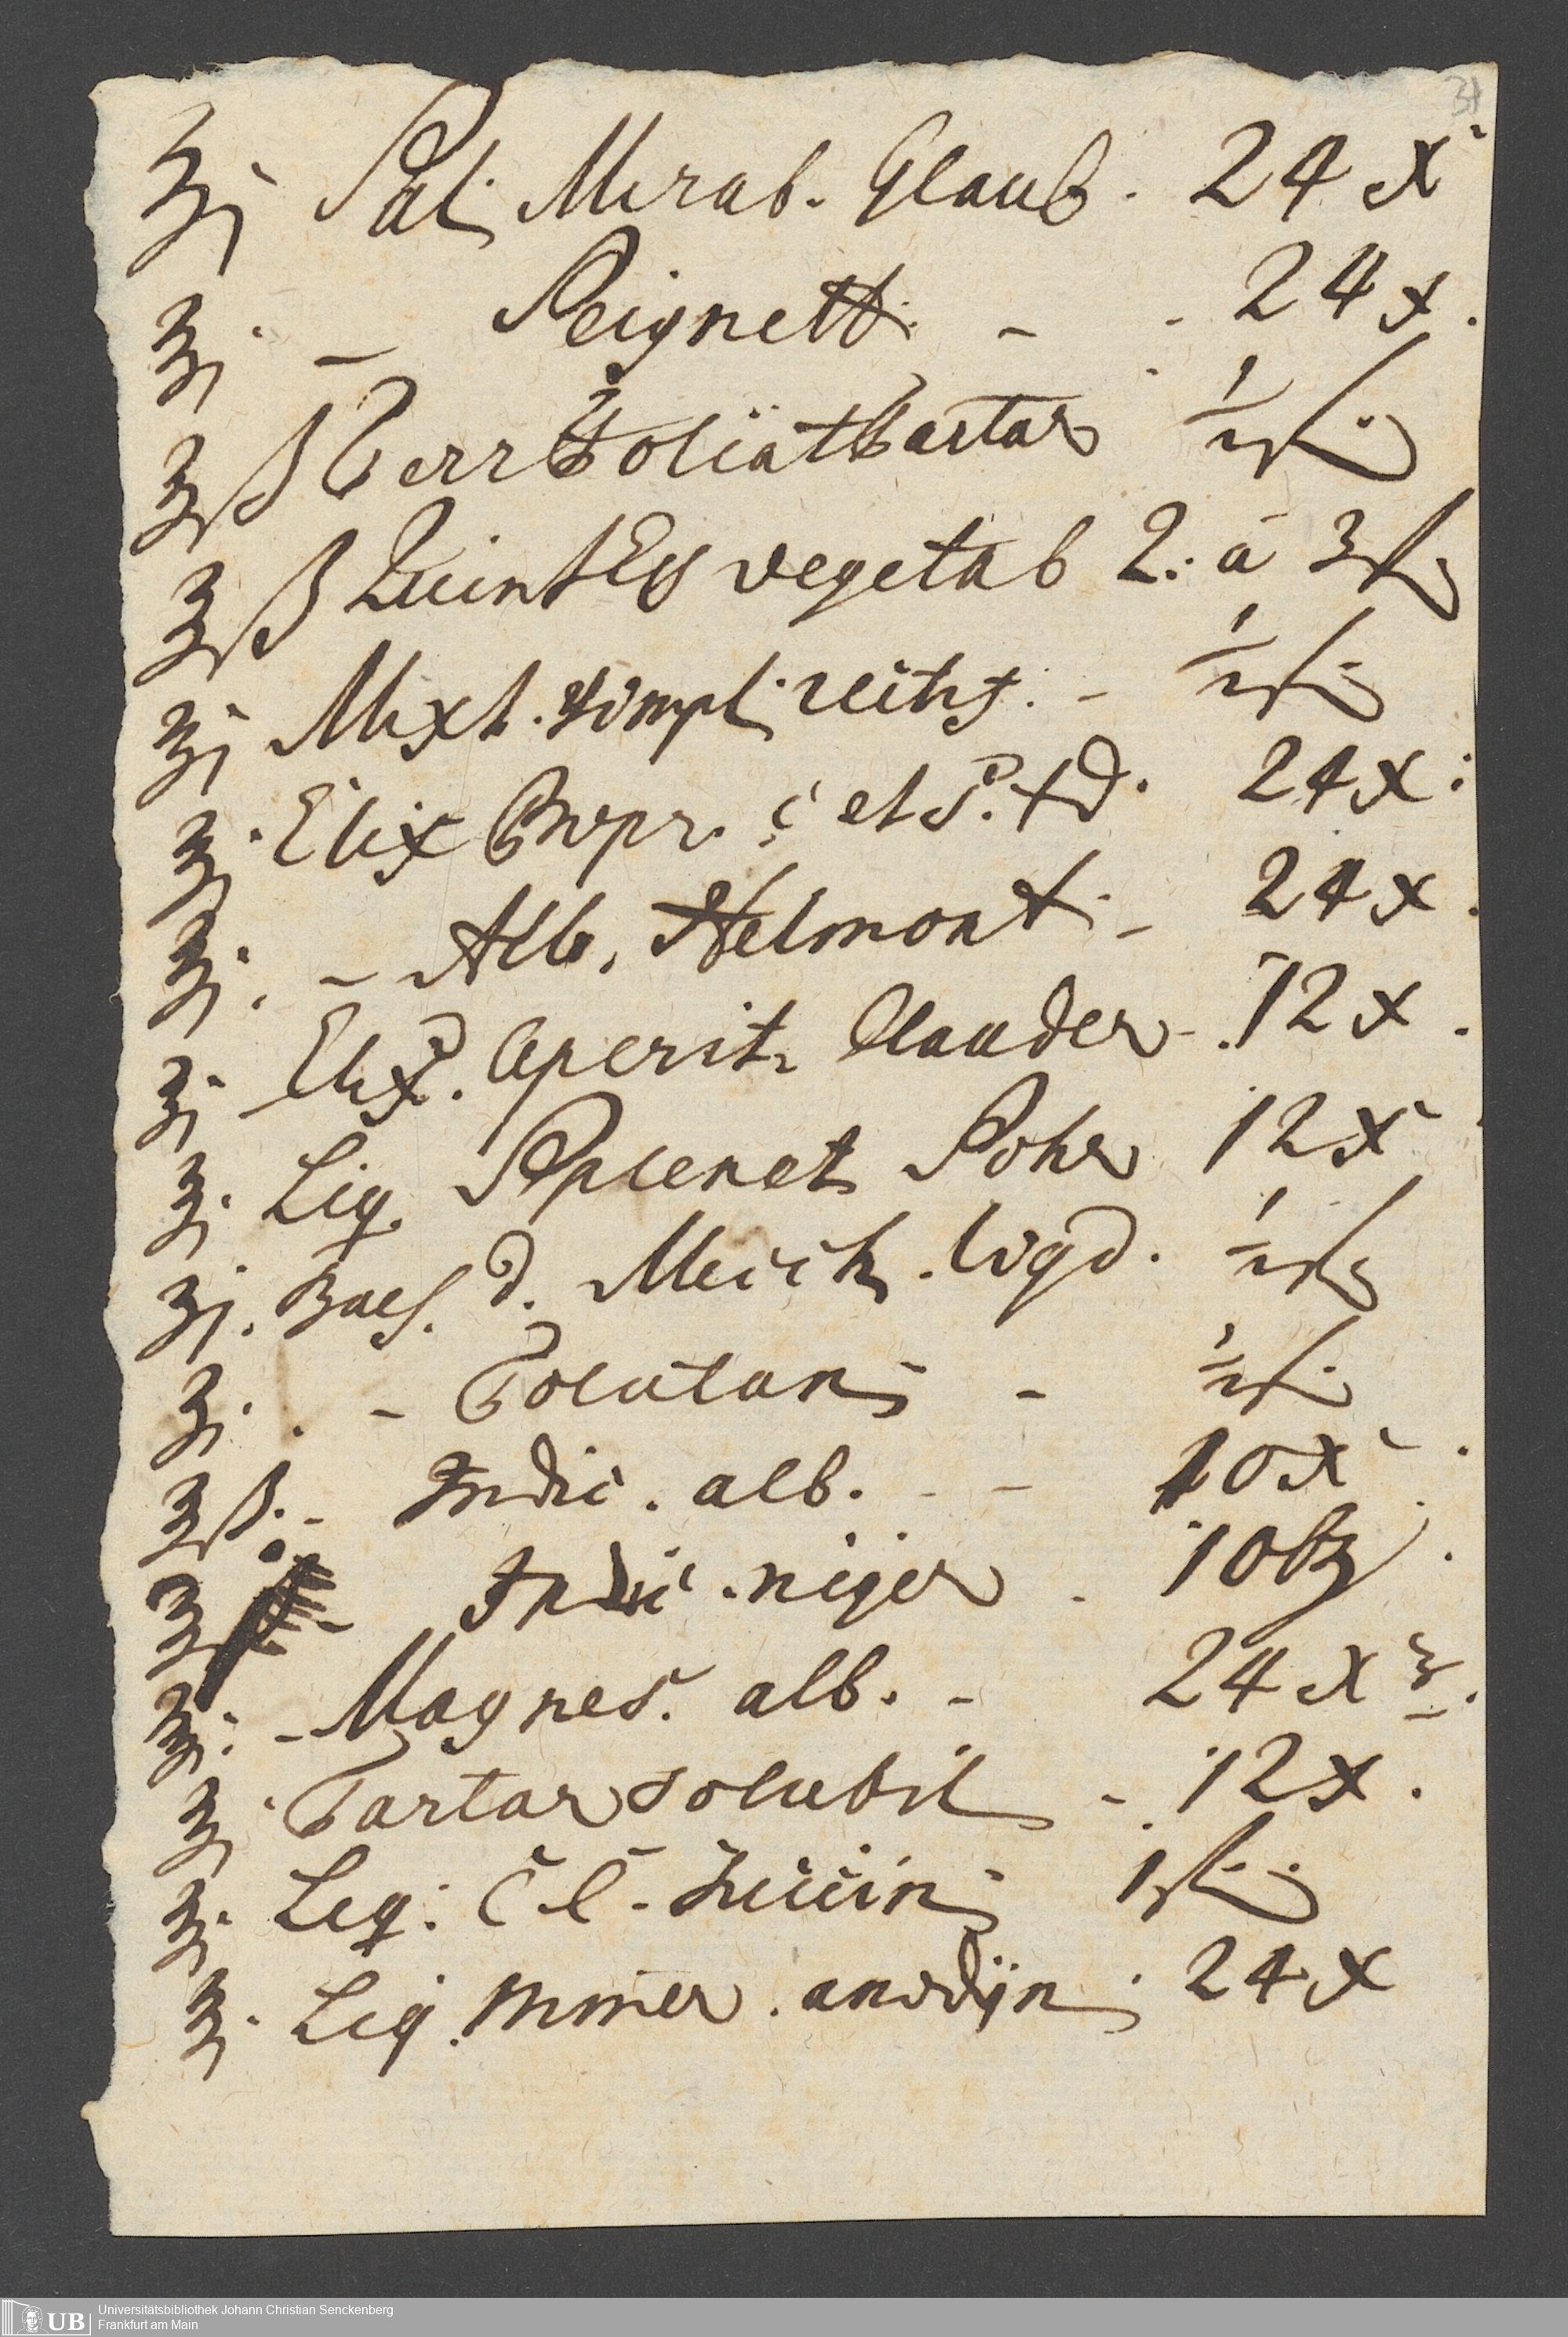 34
ʒj Sal Mirab. Glaub. 24 x
ʒj. – Seignett. – - 24 x.
ʒß Terr foliat tartar ½ f
ʒß Quint Ess vegetab 2. à 3 f
ʒj Mixt. simpl. – ½ f
ʒj. Elix Propr. c et S. 24 x.
ʒj. – Alb. Helmont. – 24 x.
ʒj Elix. Aperit. Clauder - 12 x.
ʒj. Liq. 12 x
ʒj. Bals. d. ½ f
ʒj. – Tolutan – ½ f
ʒß. - Indic. alb. - – 10 x
ʒ - Indic. niger . 10
ʒj. - Magnes. alb. - 24 x
ʒj. Tartar solubil - 12 x.
ʒj. Liq. C C. Succin 1 f
ʒj. Liq. miner. anodyn 24 x
UB Universitätsbibliothek Johann Christian Senckenberg
Frankfurt am Main